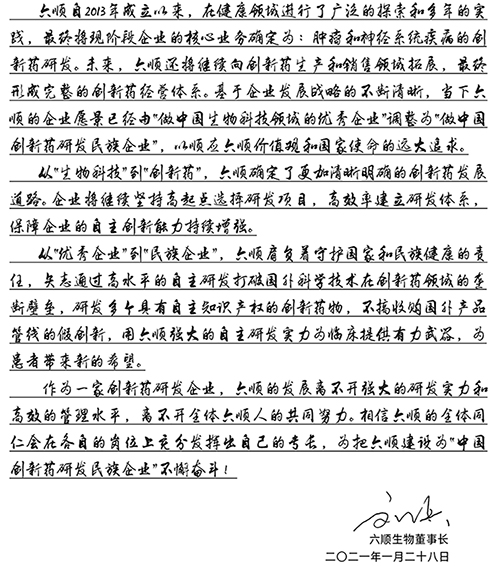 六顺自2013年成立以来，在健康领域进行了广泛的探索和多年的实
践，最终将现阶段企业的核心业务确定为：肿瘤和神经系统疾病的创
新药研发。未来，六顺还将继续向创新药生产和销售领域拓展，最终
形成完整的创新药经营体系。基于企业发展战略的不断清晰，当下六
顺的企业愿景已经由"做中国生物科技领域的优秀企业"调整为"做中国
创新药研发民族企业"，以顺应六顺价值观和国家使命的远大追求。
从"生物科技"到"创新药"，六顺确定了更加清晰明确的创新药发展
道路。企业将继续坚持高起点选择研发项目，高效率建立研发体系，
保障企业的自主创新能力持续增强。
从"优秀企业"到"民族企业"，六顺肩负着守护国家和民族健康的责
任，矢志通过高水平的自主研发打破国外科学技术在创新药领域的垄
断壁垒，研发多个具有自主知识产权的创新药物，不搞收购国外产品
管线的假创新，用六顺强大的自主研发实力为临床提供有力武器，为
患者带来新的希望。
作为一家创新药研发企业，六顺的发展离不开强大的研发实力和
高效的管理水平，离不开全体六顺人的共同努力。相信六顺的全体同
仁会在各自的岗位上充分发挥出自己的专长，为把六顺建设为"中国
创新药研发民族企业"不懈奋斗！
六顺生物董事长
二〇二一年一月二十八日